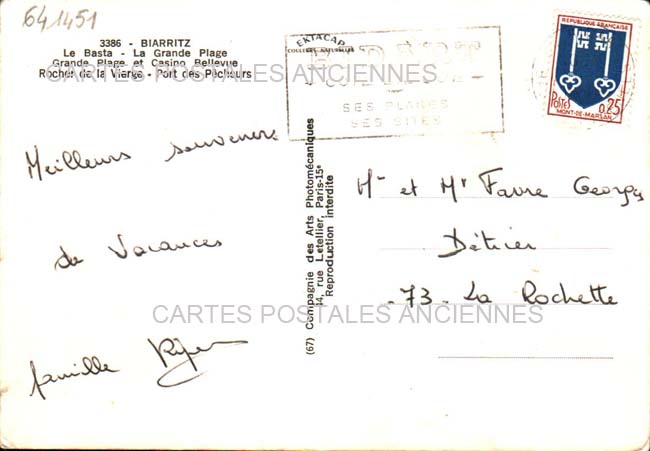 641451
3386 - BIARRITZ
Le Basta - La Grande Plage
Grande Plage et Casino Bellevue
Rocher de la Vierge - Port des Pêcheurs
EKTACAP
SES PLAGES
SES SITES
REPUBLIQUE FRANÇAISE
POSTES
0,25
MONT-DE-MARSAN
CARTES POSTALES ANCIENNES
Meilleurs souvenirs
de Vacances
famille
(67) Compagnie des Arts Photomécaniques
14, rue Letellier, Paris-15e
Reproduction interdite
Mme et Mr Favre Georges
Détrier
73 - La Rochette
CARTES POSTALES ANCIENNES